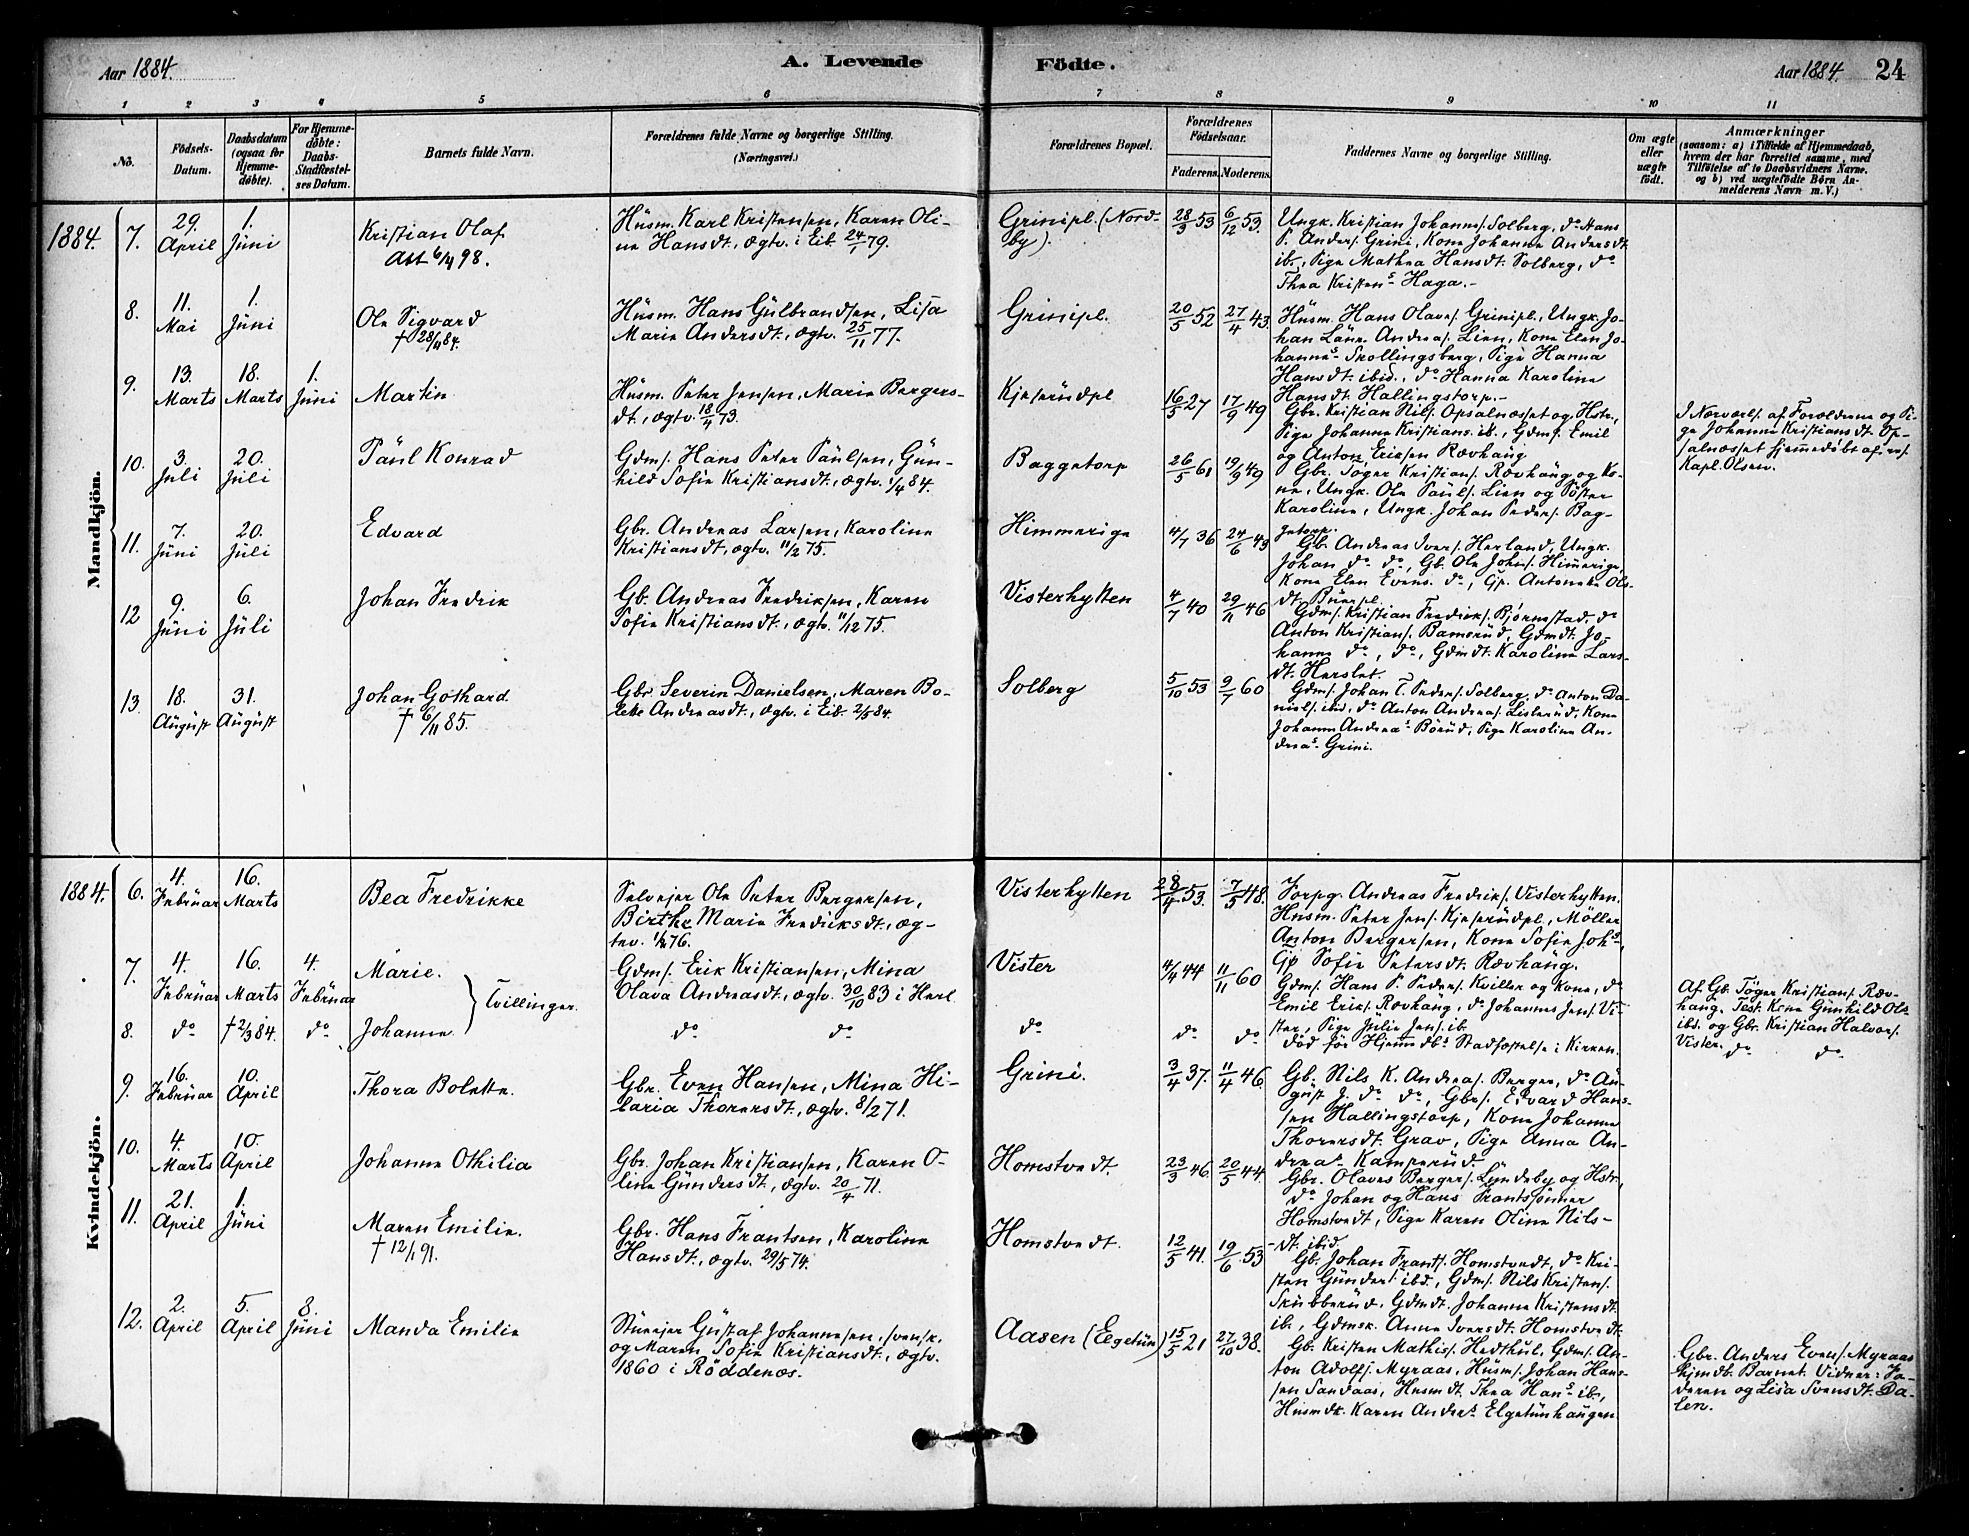 Aar 1884.
A. Levende
Födte.
Aar 1884.
24
1 2 3 4 5 6 7 8 9 10 11
No.
Födsels-
Datum.
Daabsdatum
(ogsaa for
Hjemme-
døbte).
For Hjemme-
døbte:
Daabs-
Stadfæstel-
ses Datum.
Barnets fulde Navn.
Forældrenes fulde Navne og borgerlige Stilling.
(Næringsvei.)
Forældrenes Bopæl.
Forældrenes
Födselsaar.
Faderens. Moderens.
Faddernes Navne og borgerlige Stilling.
Om ægte
eller
uægte
født.
Anmærkninger
(saasom: a) i Tilfælde af Hjemmedaab,
hvem der har forrettet samme, med
Tilföielse af to Daabsvidners Navne.
og b) ved uægtefödte Börn An-
melderens Navn m. V.)
Mandkjön.
1884. 7.
29.
April
1.
Juni
Kristian Olaf
Att 6/4 98.
Husm. Karl Kristensen, Karen Oli-
ne Hansdt., ægtv. i Eib. 24/1 79.
Grinipl. (Nord-
by).
28/3 53
6/12 53.
Ungk. Kristian Johanns. Solberg, do Hans
P. Anders. Grini, Kone Johanne Andersdt.
ib., Pige Mathea Hansdt. Solberg, do
Thea Kristens Haga.-
8.
11.
Mai
1.
Juni
Ole Sigvard
† 28/11 84.
Husm. Hans Gulbrandsen, Lisa
Marie Andersdt., ægtv. 25/11 77.
Grinipl.
20/5 52
27/4 43.
Husm. Hans Olavs. Grinipl., Ungk. Jo-
han Laur. Andreas. Lien, Kone Elen Jo-
hannes Skollingsberg, Pige Hanna
Hansdt. ibid., do Hanna Karoline
Hansdt. Hallingstorp.-
9.
13.
Marts
18.
Marts
1.
Juni
Martin
Husm. Peter Jensen, Marie Bergers-
dt., ægtv. 18/4 73.
Kjeserudpl
16/5 27
17/9 49
Gbr. Kristian Nils. Opsalnæsset og Hstr.,
Pige Johanne Kristians. ib., Gdms. Emil
og Anton Eriksen Rævhaug
I Nærværl. af Forældrene og Pi-
ge Johanne Kristiansdt. Op-
salnæsset hjemmedøbt af res.
Kapl. Olsen.
10.
3.
Juli
20.
Juli
Paul Konrad
Gdms. Hans Peter Paulsen, Gun-
hild Sofie Kristiansdt., ægtv. 1/4 84.
Baggetorp
26/5 61
19/9 49
Gbr. Töger Kristians. Rævhaug og Ko-
ne, Ungk. Ole Pauls. Lien og Söster
Karoline, Ungk. Johan Peders. Bag-
getorp.
11.
7.
Juni
20.
Juli
Edvard
Gbr. Andreas Larsen, Karoline
Kristiansdt., ægtv. 11/2 75.
Himmerige
4/7 36
24/6 43
Gb. Andreas Ivers. Herland, Ungk.
Johan do do, Gb. Ole Johs. Himerige,
Kone Elen Evens. do, Gp. Antonette Ols-
dt. Buerpl.
12
9.
Juni
6.
Juli
Johan Fredrik
Gb. Andreas Fredriksen, Karen
Sofie Kristiansdt., ægtv. 11/12 75.
Visterhytten
4/7 40
29/11 46
Gdms. Kristian Fredriks. Bjørnstad, do
Anton Kristians. Bamerud, Gdmdt. Jo-
hanne do, do, Gdmdt. Karoline Lars-
dt. Herslet.
13.
18.
August
31.
August
Johan Gothard
† 6/11 85.
Gbr. Severin Danielsen, Maren Bo-
lette Andreasdt., ægtv. i Eib. 2/5 84.
Solberg
5/10 53
9/7 60
Gdms. Johan T. Peders. Solberg, do Anton Da-
niels. ibid., do Anton Andreas. Listerud, Kone
Johanne Andreas Börud, Pige Karoline An-
dreas Grini.
Kvindekjön.
1884. 6.
4.
Februar
16.
Marts
Bea Fredrikke
Selvejer Ole Peter Bergersen,
Birthe Marie Fredriksdt., æg-
tev. 1/12 76.
Visterhytten
28/4 53.
7/5 48.
Forpg. Andreas Fredriks. Visterhytten.
Husm. Peter Jens. Kjeserudpl., Möller
Anton Bergersen, Kone Sofie Johs.,
Gp Sofie Petersdt. Rævhaug.
7.
4.
Februar
16.
Marts
4.
Februar
Marie.
Tvillinger.
Gdms. Erik Kristiansen, Mina
Olava Andreasdt., ægtv. 30/10 83 i Herl.
Vister
4/4 44
11/11 60
Gdms. Hans P. Peders. Kviller og Kone, do
Emil Eriks. Rævhaug, do Johannes Jens. Vi-
ster, Pige Julie Jens. ib.
Af Gb. Töger Kristians. Ræv-
haug. Test. Kone Gunhild Ols.
ibd. og Gbr. Kristian Halvors.
Vister.
8.
do
† 2/3 84.
do
Johanne
do do
do
do do
död för Hjemmedbs Stadfæstelse i Kirken.
do do
9.
16.
Februar
10.
April
Thora Bolette.
Gbr. Even Hansen, Mina Hi-
laria Thorersdt., ægtv. 8/2 71.
Grini.
3/4 37.
11/4 46
Gb. Nils K. Andreas. Berger, do Au-
gust J. do do, Gbrs. Edvard Hans-
sen Hallingstorp, Kone Johanne
Thorersdt. Grav, Pige Anna An-
dreas Kamperud.
10.
4.
Marts
10.
April
Johanne Othilia
Gbr. Johan Kristiansen, Karen O-
line Gundersdt., ægtv. 20/4 71.
Homstvedt.
23/3 46.
20/5 44.
Gbr. Olaves Bergers. Lundeby og Hstr.,
do Johan og Hans Frantssönner
Homstvedt, Pige Karen Oline Nils-
dt. ibid.
11.
21.
April
1.
Juni
Maren Emilie.
† 12/1 91.
Gbr. Hans Frantsen, Karoline
Hansdt., ægtv. 29/5 74.
Homstvedt.
12/5 41.
19/6 53
Gb. Johan Frants. Homstvedt, do Kri-
sten Gunders. ibd., Gdms. Nils Kristens.
Skubberud, Gdmdt. Johanne Kristensdt.
ib., Gdmsk. Anne Iversdt. Homstvedt.
12.
2.
April
5.
April
8.
Juni
Manda Emilie
Stuveier Gustaf Johannesen, svensk.
og Maren Sofie Kristiansdt., ægtv.
1860 i Röddenæs.
Aasen (Elgetun)
15/5 21
27/10 38.
Gb. Kristen Mathis. Hedthul, Gdms. An-
ton Adolfs. Myraas, Husms. Johan Hans-
sen Sandaas, Husmdt. Thea Hans ib.,
Husmdt. Karen Anders Elgetunhaugen.
Gbr. Anders Evens. Myraas
hjmdb. Barnet. Vidner: Fa-
deren og Lisa Svensdt. Da-
len.